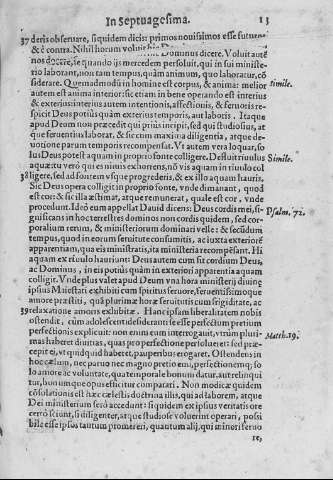 In Septuagesima. 13
37 deris obseruare, siquidem dicis: primos nouissimos esse futuros
& è contra. Nihil horum voluit Dominus dicere. Voluit autē
nos docere, ie quando ijs mercedem persoluit, qui in sui ministe-
rio laborant, non tam tempus, quàm animum, quo laboratur, cō
siderare. Quemadmodū in homine est corpus, & anima: melior Simile.
autem est anima interior: sic etiam in bene operando est interius
& exterius: interius autem intentionis, affectionis, & feruoris re-
spicit Deus potiùs quàm exterius temporis, aut laboris. Itaque
apud Deum non præcedit qui priùs incipit, sed qui studiosius, at
que feruentius laborat, & sic cum maxima diligentia, atque de-
uotione paruum temporis recompensat. Vt autem vera loquar, so-
lus Deus potest aquam in proprio fonte colligere. Desuit riuulus Simile.
aquæ: tu verò qui es nimis exhorrens, nō vis aquam in riuulo col
38 ligere, sed ad fontem vsque progrederis, & ex illo aquam hauris.
Sic Deus opera colligit in proprio fonte, vnde dimanant, quod
est cor: & sic illa æstimat, atque remunerat, quale est cor, vnde
procedunt. Ideò eum appellat Dauid dicens: Deus cordis mei, si- Psalm. 72.
gnificans in hoc terrestres dominos non cordis quidem, sed cor-
poralium rerum, & ministeriorum dominari velle: & secūdùm
tempus, quod in eorum seruitute consumitis, ac iuxta exteriorē
apparentiam, quæ vestra est, ita ministeria recompēsant. Hi
aquam ex riuulo hauriunt: Deus autem cum sit cordium Deus,
ac Dominus, in eis potiùs quàm in exteriori apparentia aquam
colligit. Vnde plus valet apud Deum vna hora ministerij diuinę
ipsius Maiestati exhibiti cum spiritus feruore, feruentissimoque
amore præstiti, quã plurimæ horæ seruitutis cum frigiditate, ac
39 relaxatione amoris exhibitæ. Hanc ipsam liberalitatem nobis
ostendit, cùm adolescenti desideranti se esse perfectum pretium
perfectionis explicuit: non enim eum interrogauit, vtrùm pluri- Matth. 19.
mas haberet diuitias, quas pro perfectione persolueret: sed præ-
cepit ei, vt quidquid haberet, pauperibus erogaret. Ostendens in
hoc cælum, nec paruo nec magno pretio emi, perfectionemq; so-
lo amore ac voluntate, qua temporale bonum datur, aut relinqui
tur, bonumque opus efficitur comparari. Non modicæ quidem
cōsolationis est hæc cælestis doctrina illis, qui ad laborem, atque
Dei ministerium serò accedunt: siquidem ex ipsius veritatis ore
certò sciunt, si diligenter, atque studiosè voluerint operari, possi
bile esse ipsos tantum promereri, quantum alij, qui minori feruo
re,